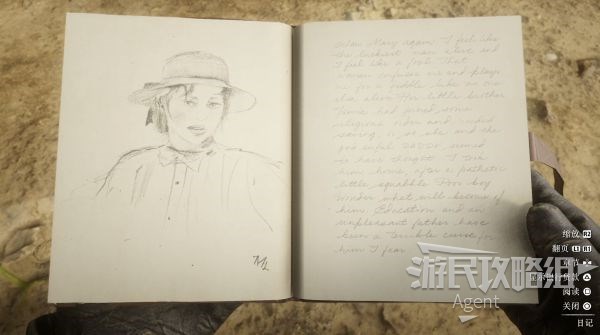 Saw Mary again. I feel like
the luckiest man alive and
I feel like a fool. That
woman confuses me and plays
me for a fiddle like no one
else alive. Her little brother
Jamie had joined some
religious order and needed
saving, or so she and the
god awful DADDY seemed
to have thought. I took
him home, after a pathetic
little squabble. Poor boy
wonder what will become of
him. Education and an
unpleasant father have
been a terrible curse for
him I fear.
ML
缩放 R2
翻页 L1 R1
阅读
关闭
日记
游民攻略组
Agent